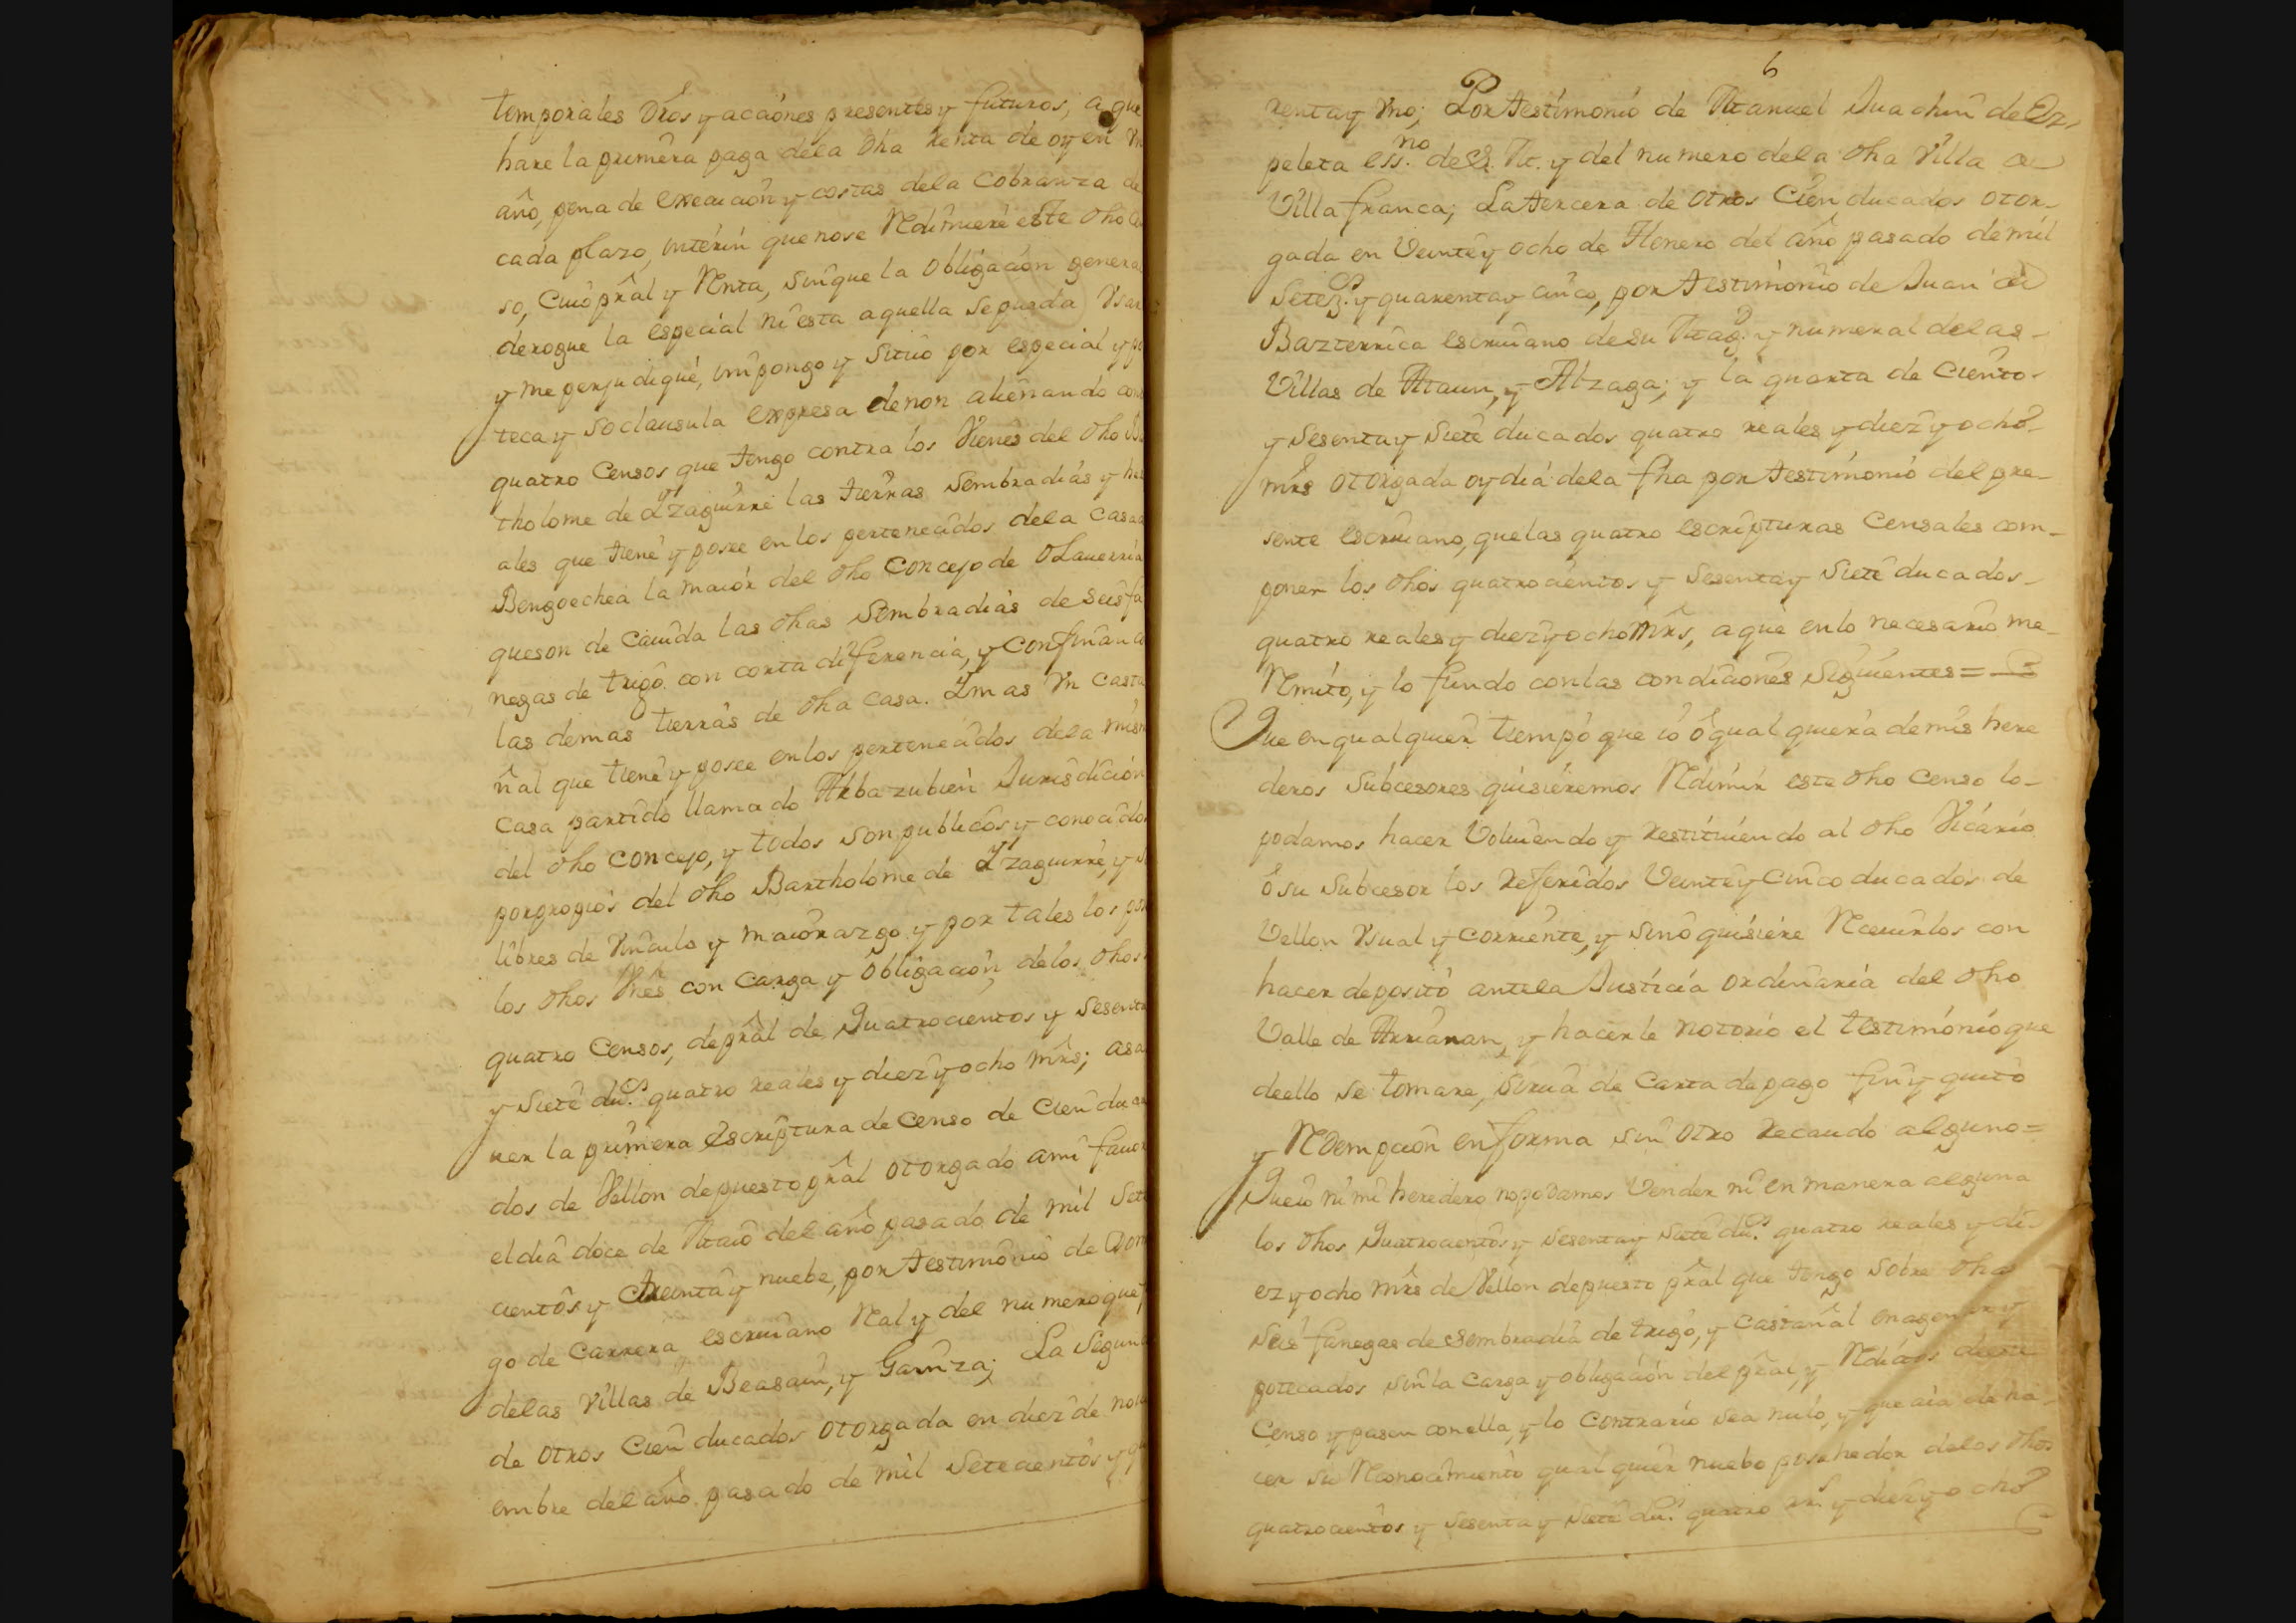 temporales dros y aciones presentes y futuros, a que
hare la primera paga dela dha renta de oy en Vn
año, pena de execucion y costas dela cobranza de
cada plazo, interin que nose Redimiere este dho cen
so, Cuio pral y Renta, sin que la obligacion general
derogue la especial ni esta aquella segueda Vsar
y me perjudique, impongo y sitúo por especial y
teca y so clausula expresa de non alienando
quatro Censos que tengo contra los Vienes del dho
tholome de Yzaguirre las tierras sembradias y
ales que tiene y posee en los pertenecidos dela casa
Bengoechea la maior del dho Concejo de Olauerria
queson de Cauida las dhas sembradias de seis fa
negas de trigo con corta diferencia, y confinan
las demas tierras de dha casa. Ymas Vn casta
ñal que tiene y posee en los pertenecidos dela mism
casa partido llamado Arbazubien Jurisdicion
del dho concejo, y todos son publicos y conocidos
por propios del dho Bartholome de Yzaguirre, y
libres de Vinculo y maiorazgo y por tales los
los dhos Vnes con Carga y obligacion, delos dhos
quatro Censos, de pral de Quatrocientos y sesenta
y siete dus. quatro reales y diez y ocho mrs; asa
uer la primera Escriptura de Censo de Cien duca
dos de Vellon de puesto pral otorgado ami fauor
el dia doce de Maio del año pasado de mil sete
cientos y treinta y nuebe, por testimonio de Dom
go de Carrera escriuano Real y del numero que
delas Villas de Beasain, y Gainza; La Segun
de otros Cien ducados otorgada en diez de noui
embre del año pasado de mil setecientos y
6
renta y Vno; Por testimonio de Manuel Juachin de Oz
peleta essno. de S. M. y del numero dela dha Villa de
Villafranca; La tercera de otros Cien ducados otor-
gada en Veinte y ocho de Henero del año pasado de mil
setezs. y quarenta y cinco, por testimonio de Juan de
Bazterrica escriuano de su Magd. y numeral delas
Villas de Ataun, y Alzaga; y la quarta de Ciento
y sesenta y siete ducados quatro reales y diez y ocho
mrs otorgada oy dia dela fha por testimonio del pre-
sente escriuano, que las quatro escripturas Censales com-
ponen los dhos quatrocientos y sesenta y siete ducados
quatro reales y diez y ocho mrs, a que en lo necesario me
Remito, y lo fundo con las condiciones siguientes =
Que en qualquier tiempo que io ó qual quiera de mis here
deros subcesores quisieremos Redimir este dho Censo lo-
podamos hacer Voluiendo y restituiendo al dho Vicario
ó su subcesor los referidos Veinte y Cinco ducados de
Vellon Vsual y corriente, y sino quisiere Receuirlos con
hacer deposito ante la Justicia ordinaria del dho
Valle de Arrianan, y hacerle notorio el testimonio que
deello se tomare, sirua de Carta de pago fin y quito
y Redempcion en forma sin otro recaudo alguno =
Que io ni mi heredero nopodamos Vender ni en manera alguna
los dhos Quatrocientos y sesenta y siete dus. quatro reales y di-
ez y ocho mrs de Vellon de puesto pral que tengo sobre dhas
seis fanegas de sembradia de trigo, y castañal enagenar y
potecados sin la Carga y obligacion del pral, y Reditos deeste
Censo y pasen con ella, y lo contrario sea nulo, y que aia de ha-
cer su Reconocimiento qualquier nuebo posehedor delos dhos
quatrocientos y sesenta y siete dus. quatro rs. y diez y ocho